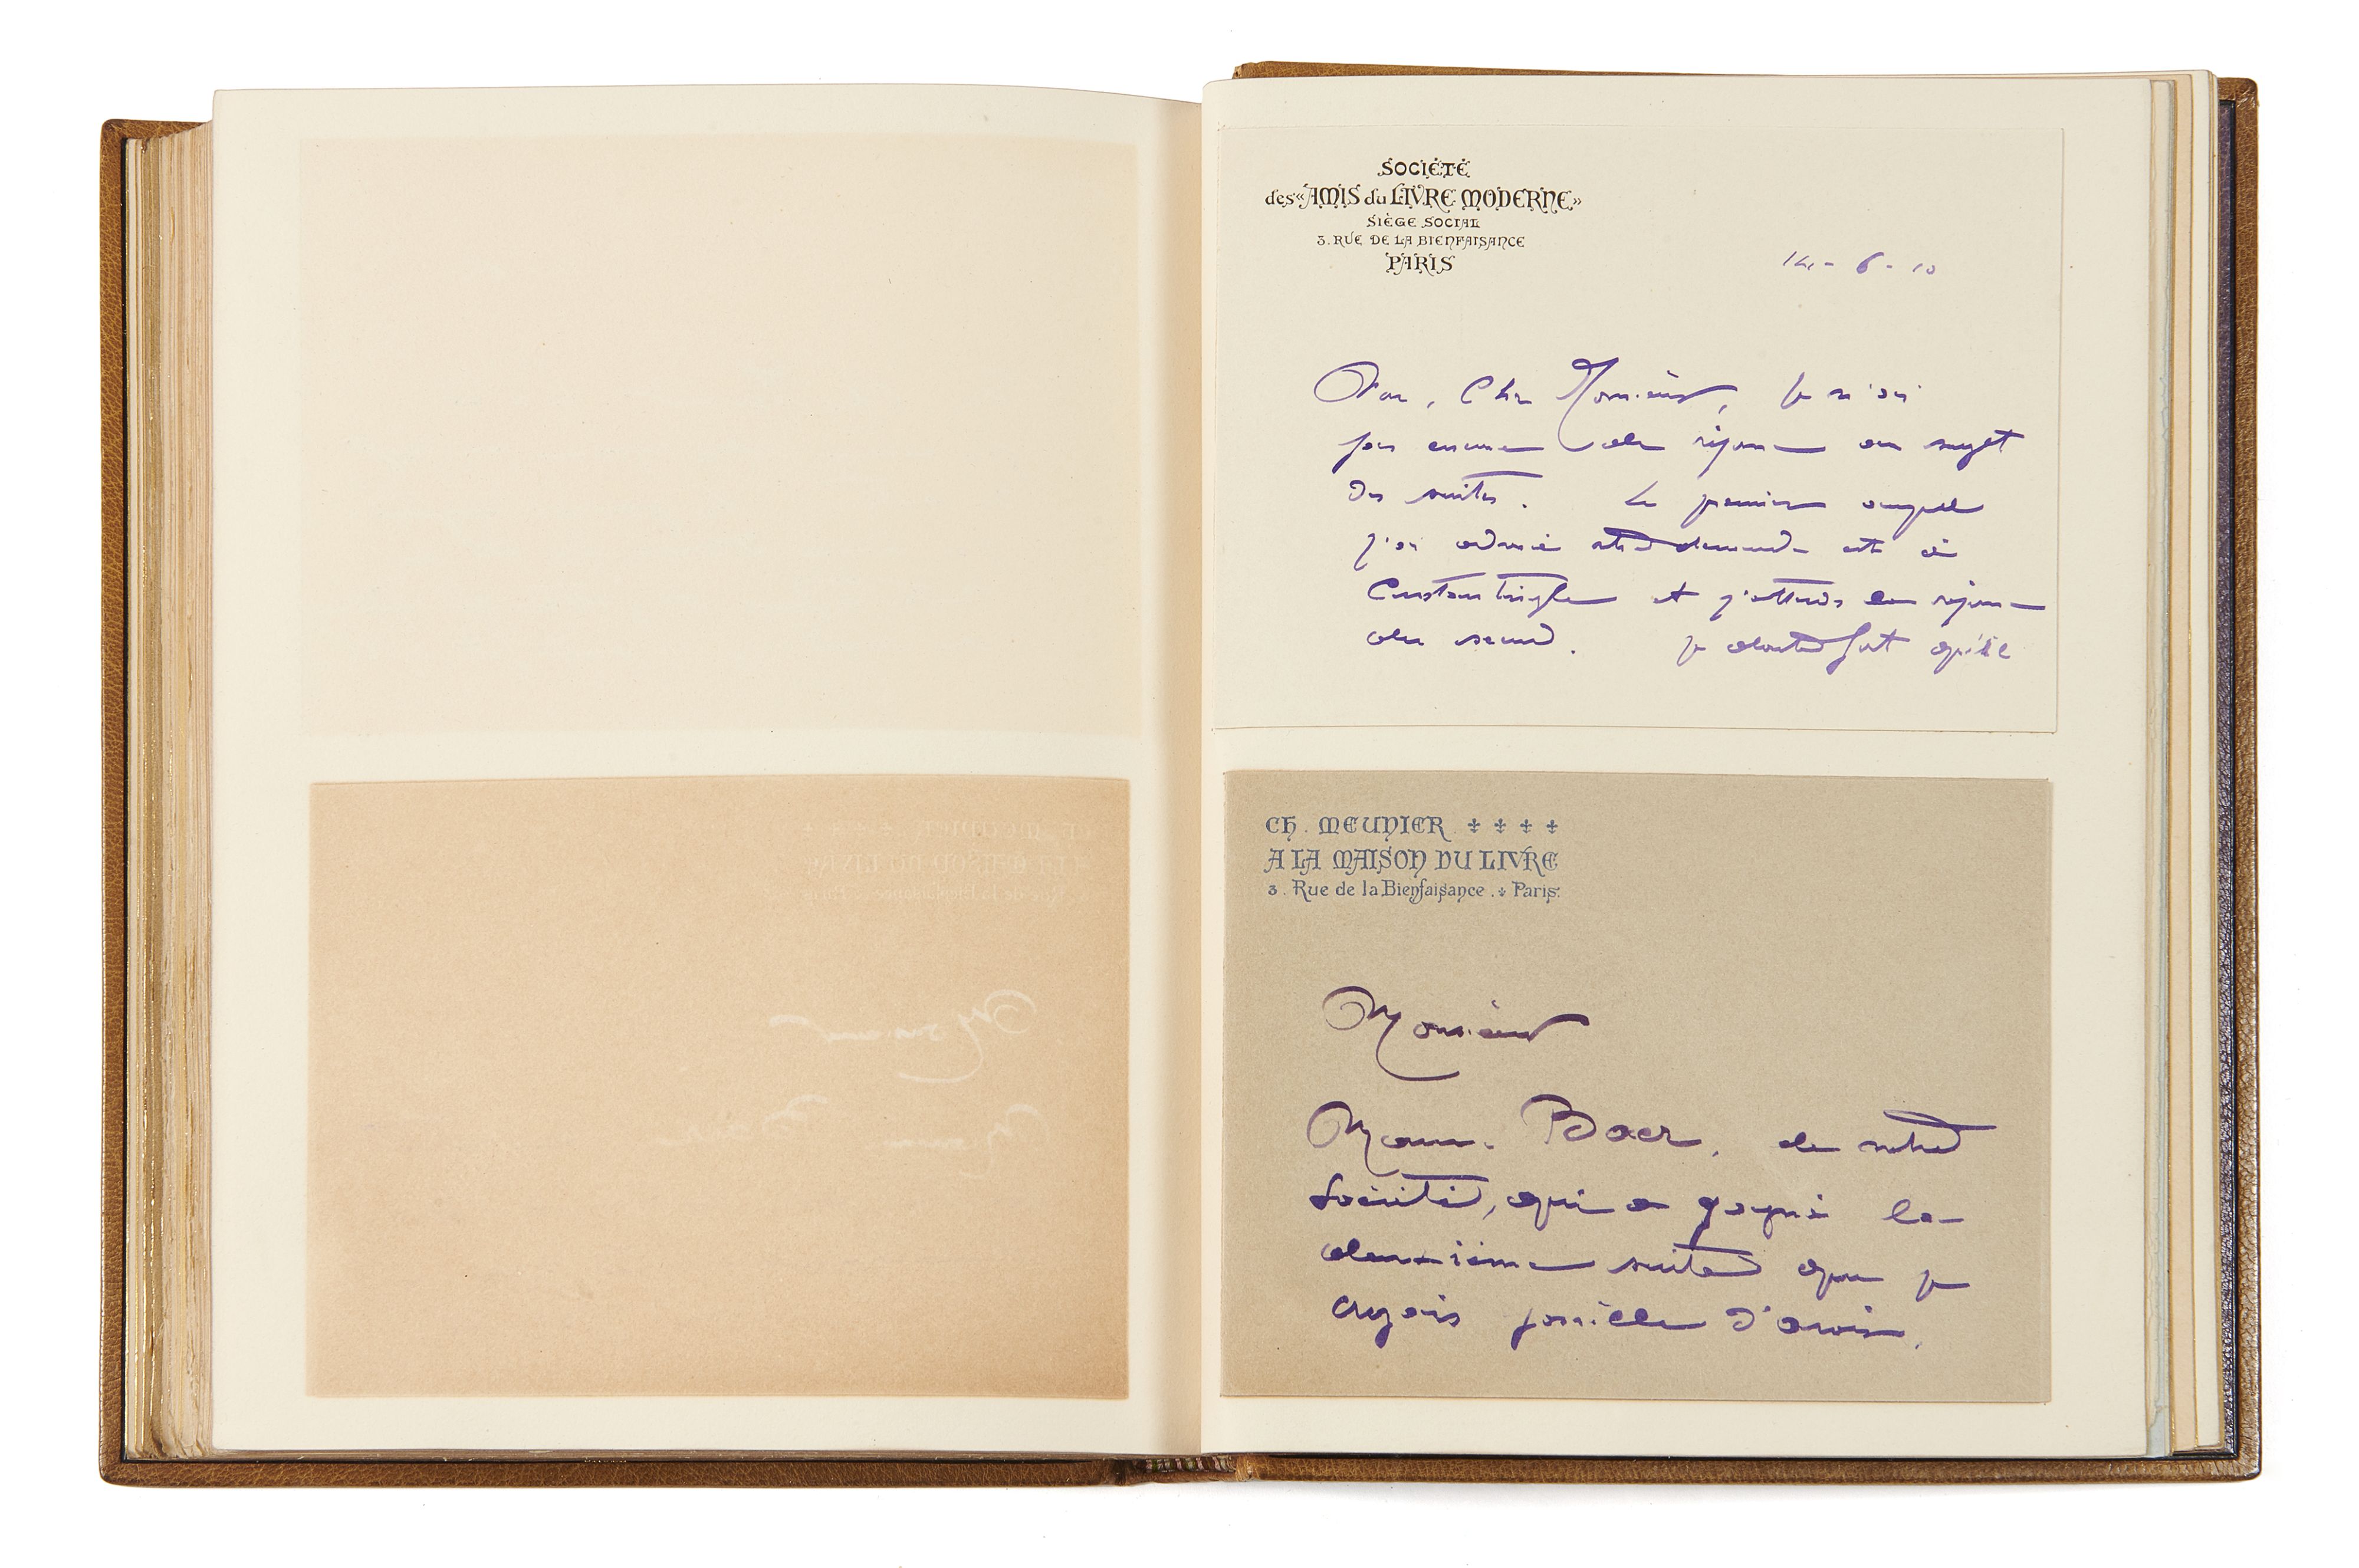 SOCIÉTÉ
des «AMIS du LIVRE MODERNE»
SIÈGE SOCIAL
3. RUE DE LA BIENFAISANCE
PARIS
14 - 6 - 10
Non, Cher Monsieur, je n'ai
pas encore de réponse au sujet
des suites. Le premier auquel
j'ai adressé demande est à
Constantinople et j'attends la réponse
du second. Je doute fort qu'il
CH. MEUNIER
A LA MAISON DU LIVRE
3. Rue de la Bienfaisance. Paris.
Monsieur
Baer, de notre
Société, qui a gagné la
deuxième suite que je
croyais possible d'avoir,